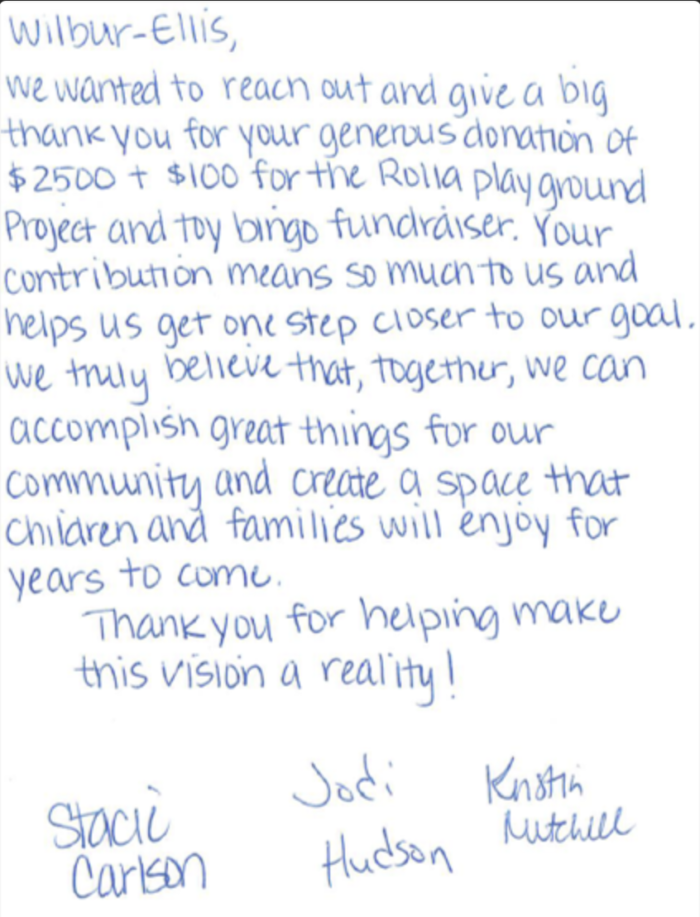 Wilbur-Ellis,
We wanted to reach out and give a big
thank you for your generous donation of
$2500 + $100 for the Rolla playground
Project and toy bingo fundraiser. Your
contribution means so much to us and
helps us get one step closer to our goal.
We truly believe that, together, we can
accomplish great things for our
community and create a space that
children and families will enjoy for
years to come.
Thank you for helping make
this vision a reality!
Jodi Kristin
Stacie Mitchell
Carlson Hudson